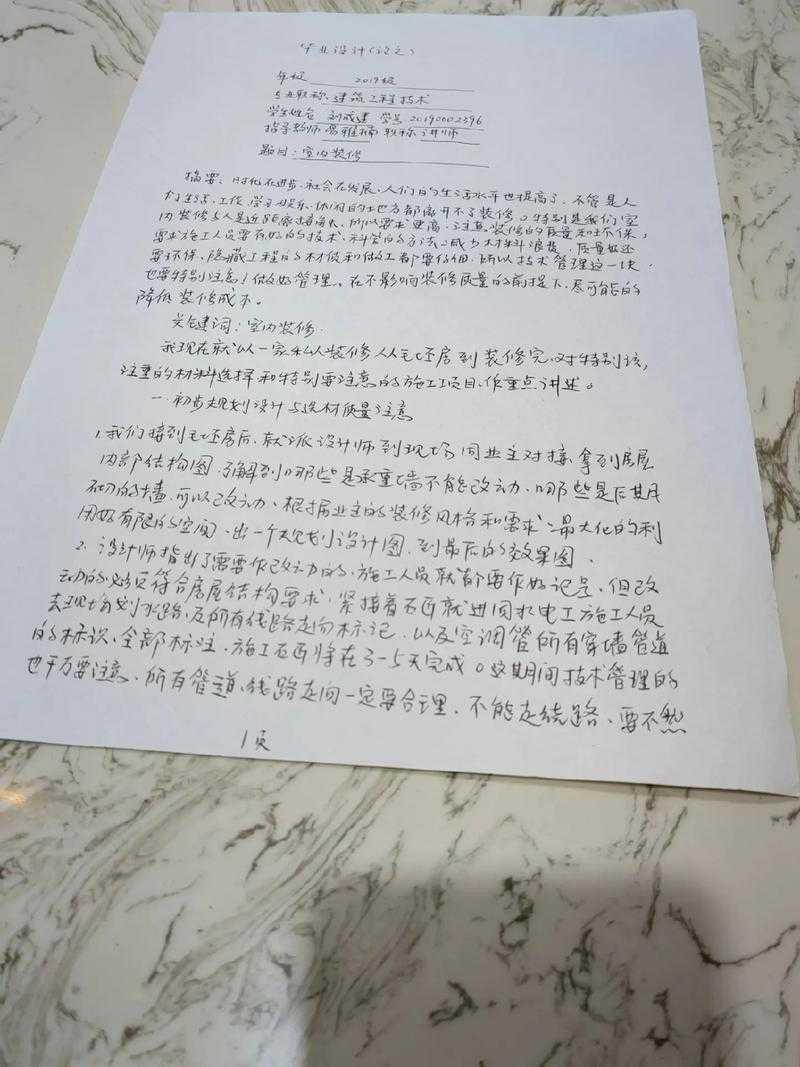 毕业设计(论文)
年级 2019级
专业职称:建筑工程技术
学生姓名 刘成建 学号 20190002396
指导教师 冯雅楠 职称 讲师
题目:室内装修
摘要:时代在进步,社会在发展,人们的生活水平也提高了,不管是人
们生活、工作、学习、娱乐、休闲的地方都离开不了装修。特别是我们室
内装修与人是近距离接触,所以要求更高,注重装修的质量和环保,
要求施工人员要有好的技术,科学的方法,减少材料浪费,质量好还
要环保,隐藏工程的材质和做工都要仔细,所以技术管理这一块
也要特别注意!做好管理,在不影响装修质量的前提下,尽可能的
降低装修成本。
关键词:室内装修
我现在就以一家私人装修从毛坯房到装修完,对特别该,
注重的材料选择和特别要注意的施工项目,作重点讲述。
一 初步规划设计与选材质量注意
1.我们接到毛坯房后,就派设计师到现场同业主对接,拿到房屋
内部结构图,了解到哪些是承重墙不能改动,哪些是后期
砌的墙,可以改动,根据业主的装修风格和需求,最大化的利
用好有限的空间,出一个规划设计图,到最后的效果图.
2.设计师指出了需要作改动的,施工人员就都要作好记号,但改
动的必须符合房屋结构要求,紧接着后再就进同水电工施工人员
去现场划水路,及所有线路走向标记,以及空调管所有穿墙管道
的标识,全部标注,施工后再将在3-5天完成。这期间技术管理的
也千万要注意,所有管道、线路走向一定要合理,不能走绕路,要不然
1页